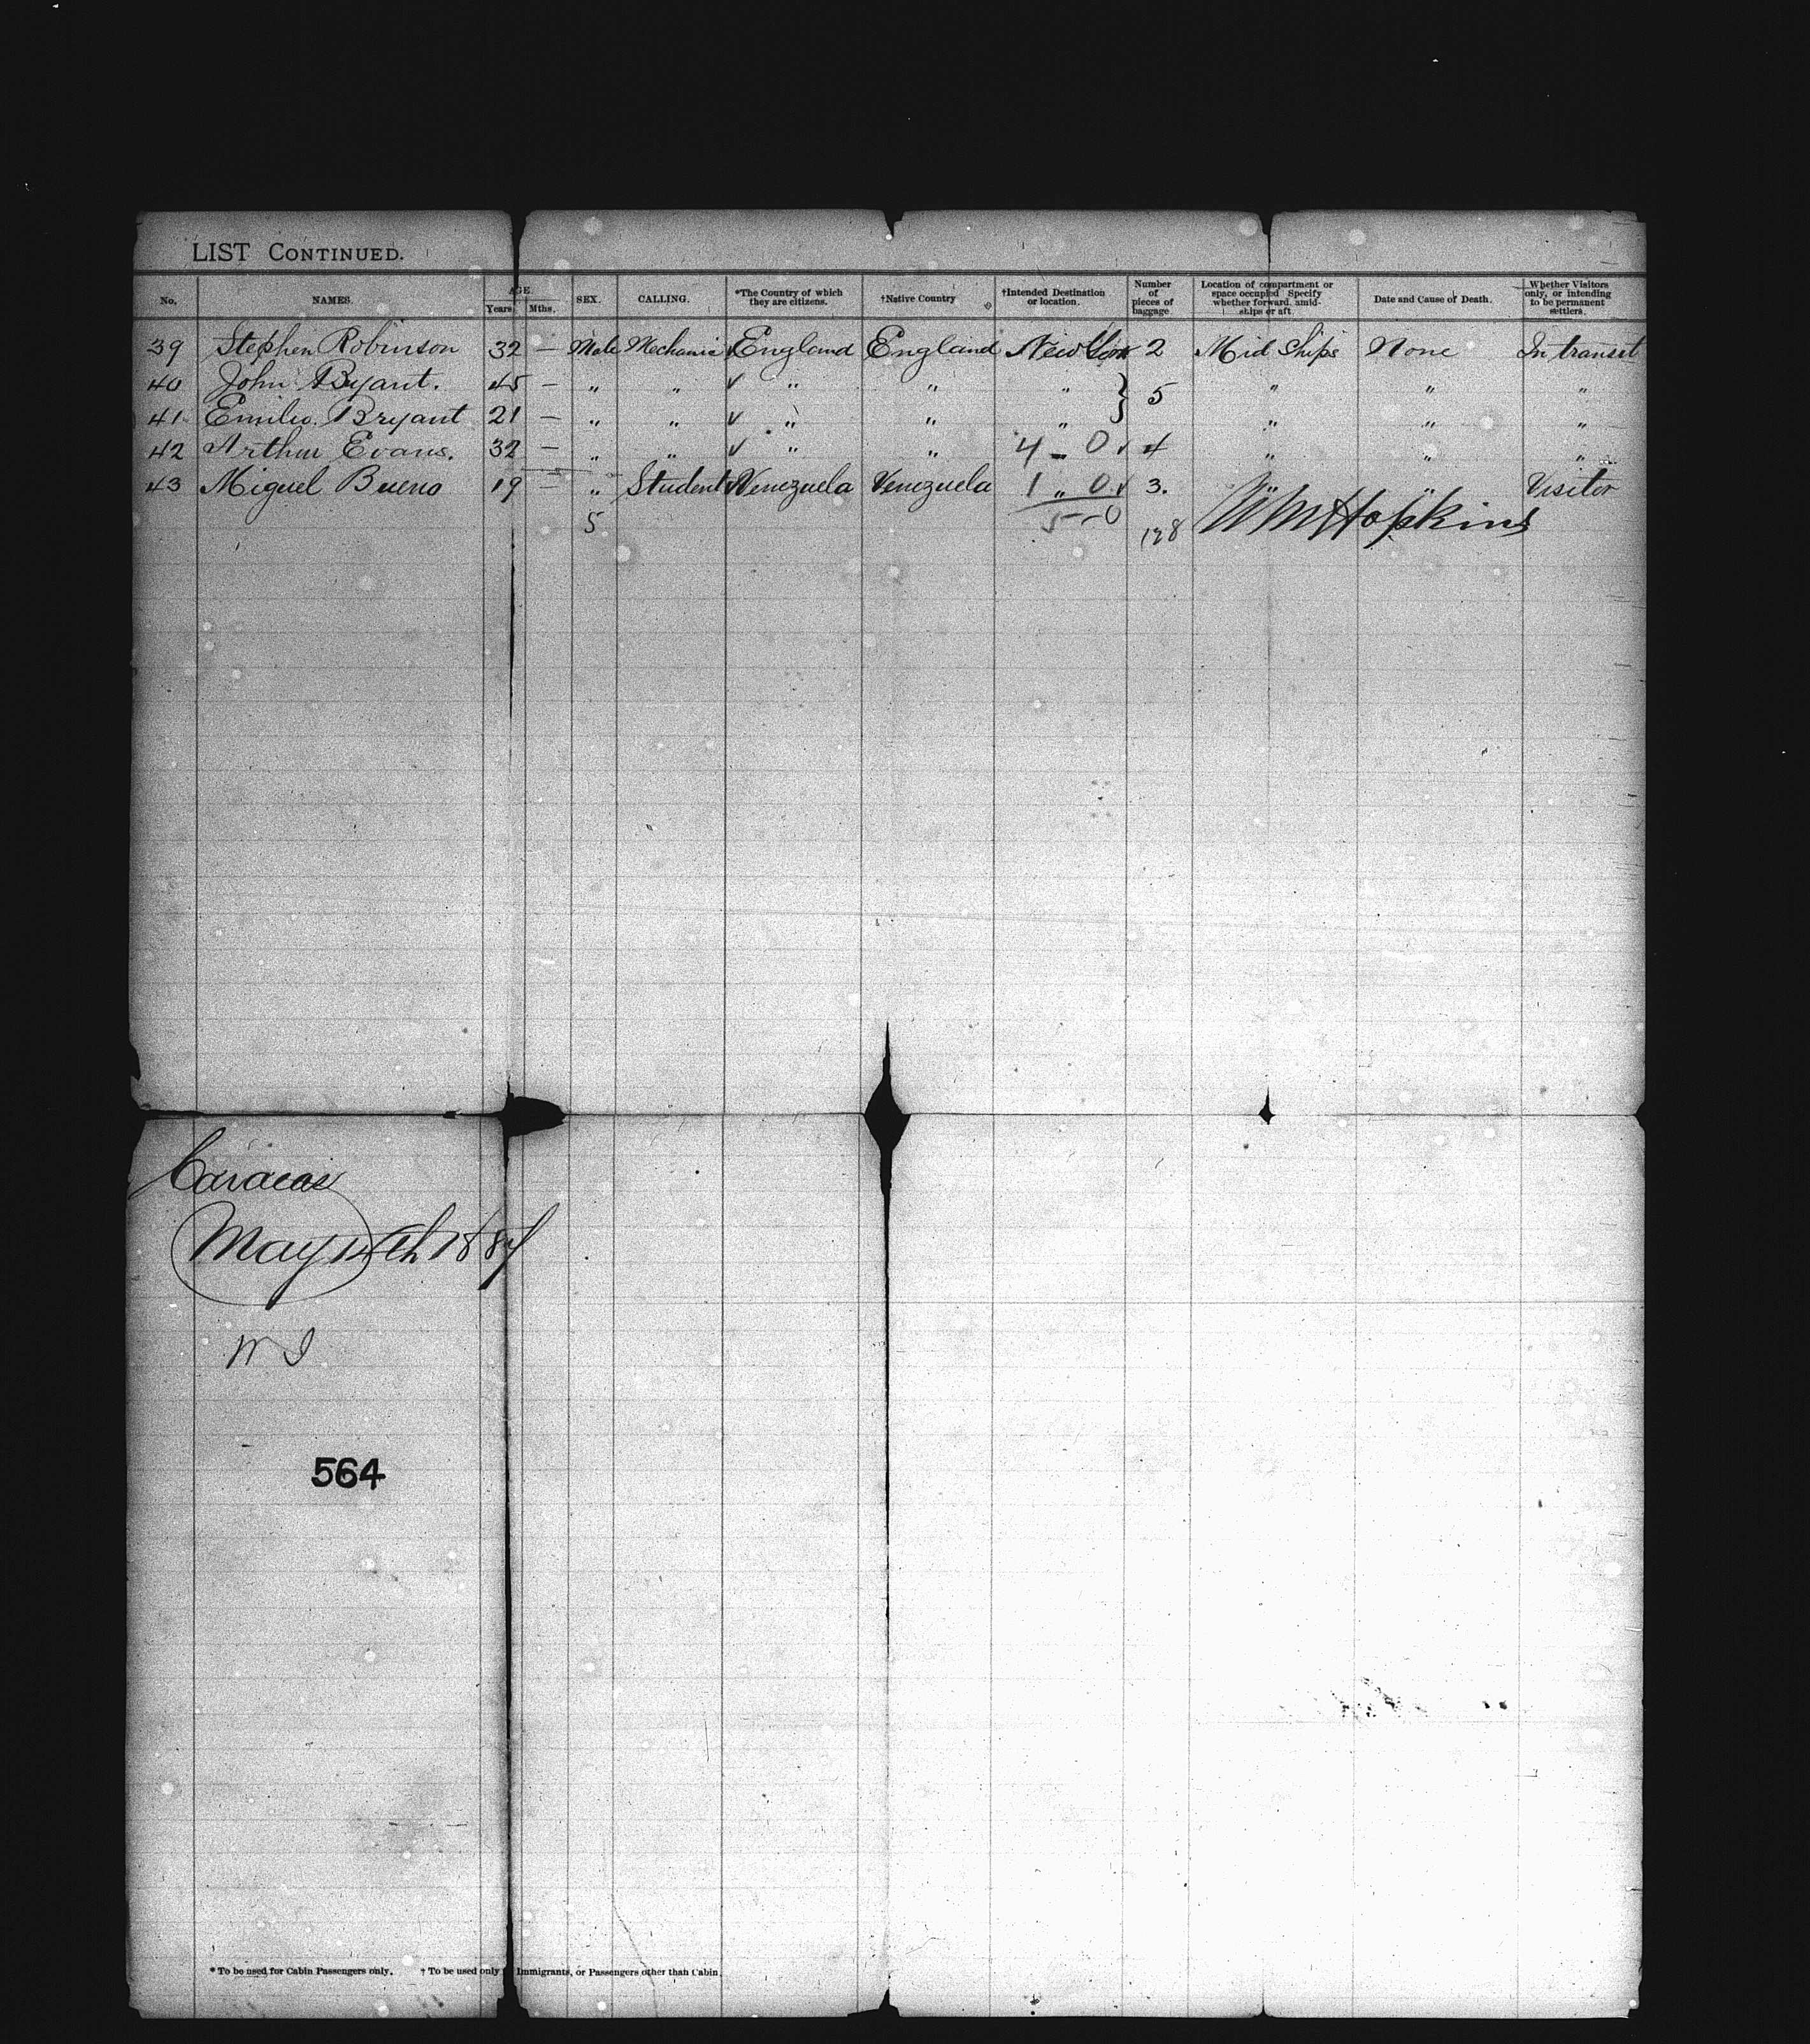 LIST CONTINUED.
No. NAMES. AGE. Years. Mths. SEX. CALLING. *The Country of which they are citizens. †Native Country †Intended Destination or location. Number of pieces of baggage Location of compartment or space occupied Specify whether forward, amidships or aft Date and Cause of Death. Whether Visitors only, or intending to be permanent settlers.
39 Stephen Robinson 32 — Male Mechanic ✓ England England New York 2 Mid Ships None In transit
40 John Bryant. 45 — " " ✓ " " " } 5 " " "
41 Emilio Bryant 21 — " " ✓ " " " " " "
42 Arthur Evans. 32 — " " ✓ " " 4 - 0 ✓ 4 " " "
43 Miguel Bueno 19 — " Student ✓ Venezuela Venezuela 1 " 0 ✓ 3. " " Visitor
5 5-0 128 WM Hopkins
Caracas
May 14th 1887
W I
564
* To be used for Cabin Passengers only. † To be used only Immigrants, or Passengers other than Cabin.